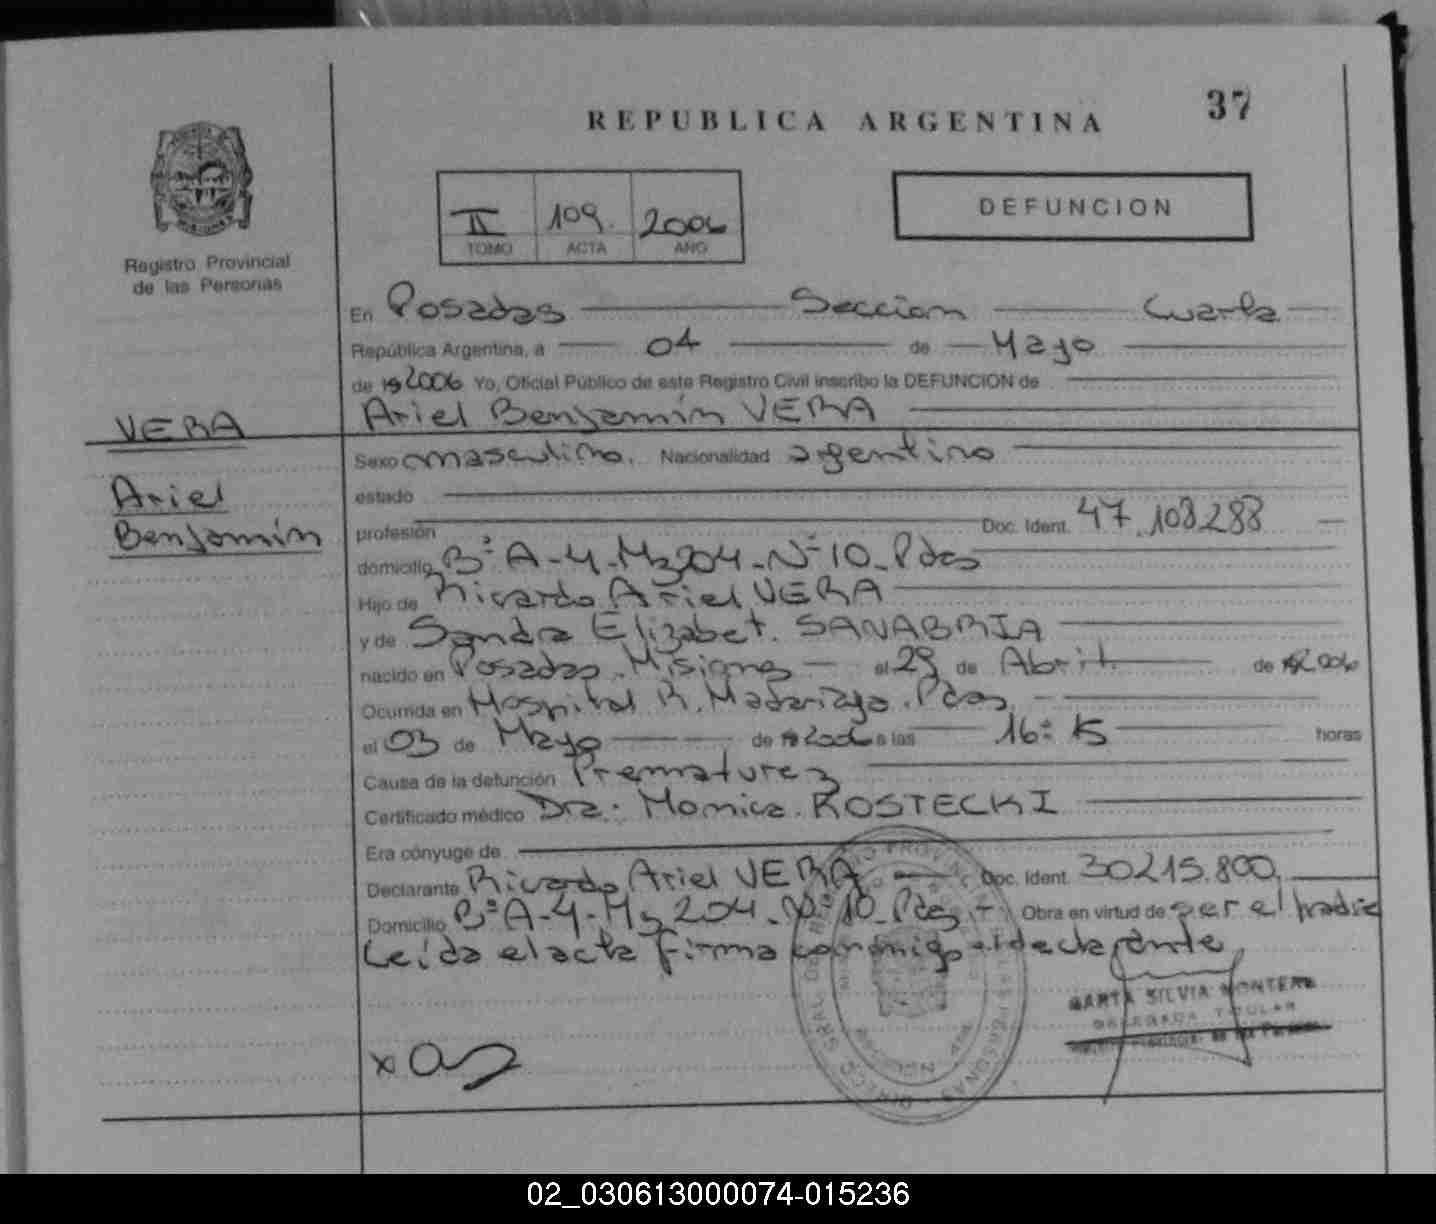 37
REPUBLICA ARGENTINA
II 109. 2006
TOMO ACTA AÑO
DEFUNCION
Registro Provincial
de las Personas
En Posadas Seccion Cuarta
República Argentina, a 04 de Mayo
de 19 2006 Yo, Oficial Público de este Registro Civil inscribo la DEFUNCION de
Ariel Benjamín VERA
VERA
Ariel
Benjamín
Sexo masculino. Nacionalidad argentino
estado
profesión Doc. Ident. 47.108288
domicilio Bº A-4-Mz204-Nº10-Pdas
Hijo de Ricardo Ariel VERA
y de Sandra Elizabet. SANABRIA
nacido en Posadas. Misiones el 29 de Abril. de 19 2006
Ocurrida en Hospital R. Madariaga. Pdas
el 03 de Mayo de 19 2006 a las 16:15 horas
Causa de la defunción Prematurez
Certificado médico Dra: Monica. ROSTECKI
Era cónyuge de
Declarante Ricardo Ariel VERA Doc. Ident. 30215.800
Domicilio Bº A-4-Mz 204-Nº10-Pdas Obra en virtud de ser el padre
Leída el acta firma conmigo el declarante
MARTA SILVIA MONTERO
DELEGADA TITULAR
02_030613000074-015236